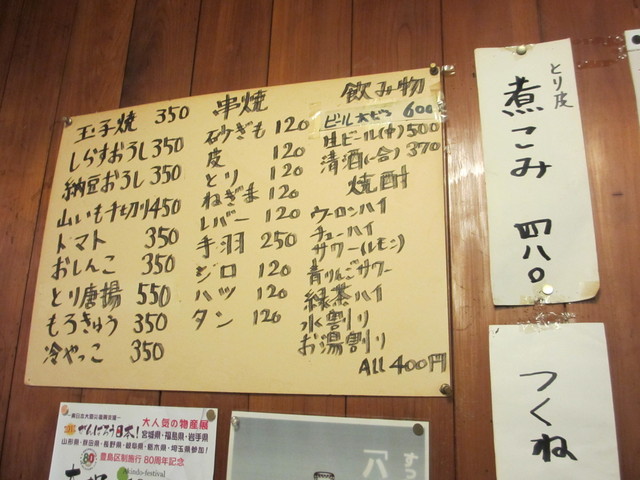 玉子焼 350
しらすおろし 350
納豆おろし 350
山いも千切り 450
トマト 350
おしんこ 350
とり唐揚 550
もろきゅう 350
冷やっこ 350
串焼
砂ぎも 120
皮 120
とり 120
ねぎま 120
レバー 120
手羽 250
ジロ 120
ハツ 120
タン 120
飲み物
ビール大びん 600
生ビール(中) 500
清酒(一合) 370
焼酎
ウーロンハイ
チューハイ
サワー(レモン)
青りんごサワー
緑茶ハイ
水割り
お湯割り
All 400円
とり皮
煮こみ 四八〇
つくね
東日本大震災復興支援
がんばろう日本!
大人気の物産展
宮城県・福島県・岩手県
山形県・秋田県・長野県・岐阜県・栃木県・埼玉県参加!
80 豊島区制施行 80周年記念
kindo-festival
「八
すっ